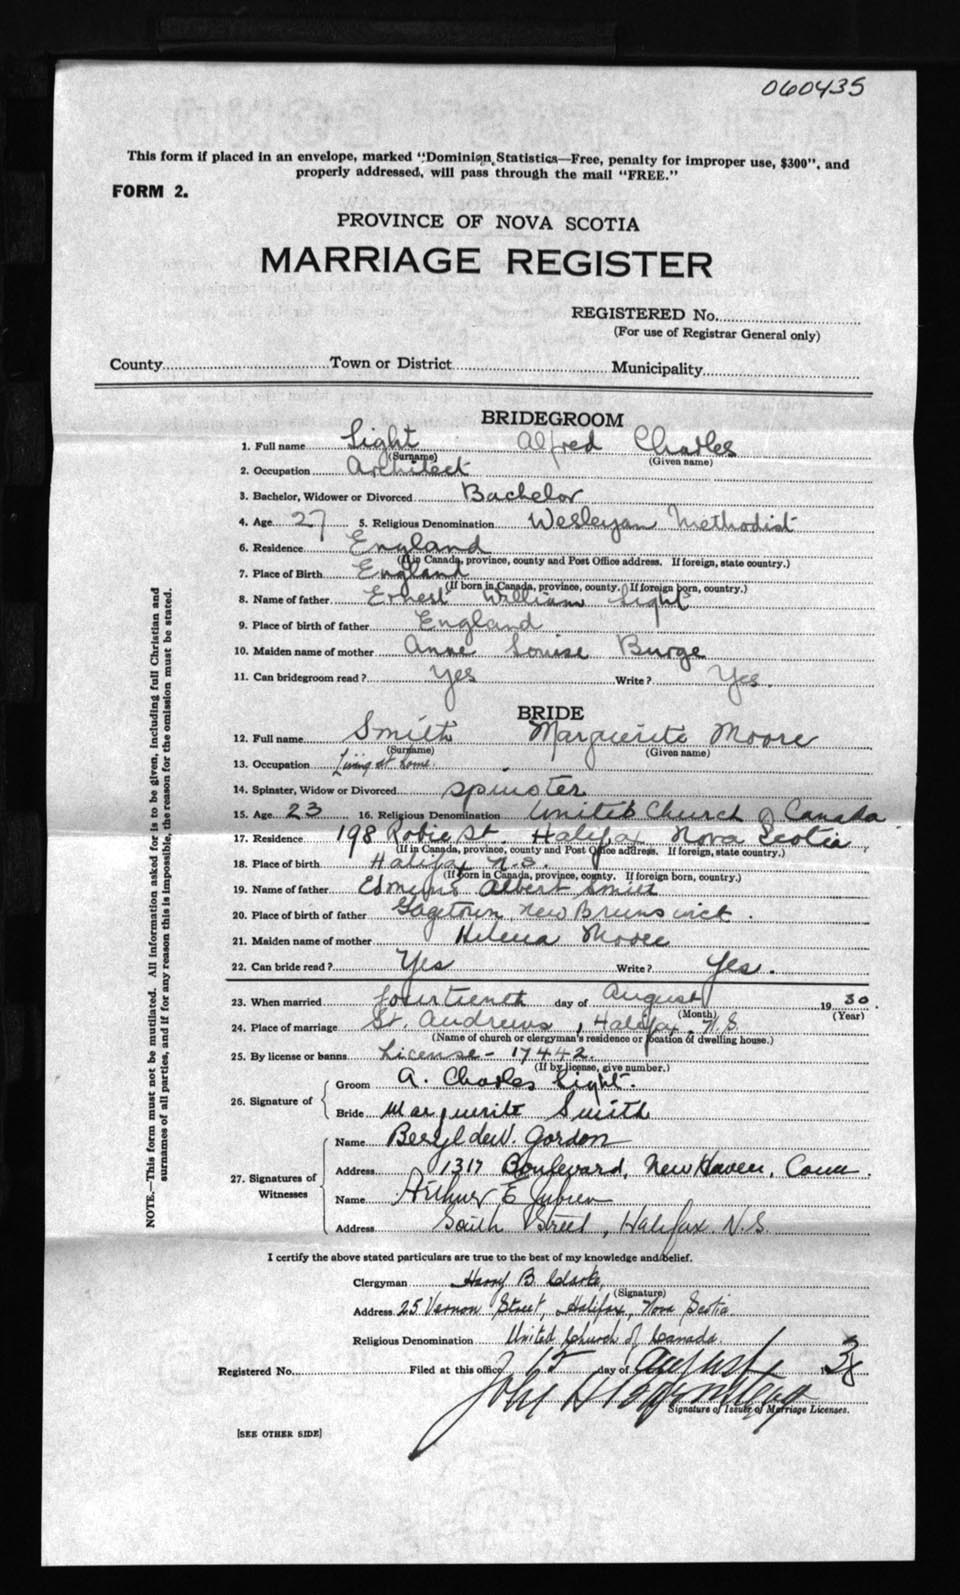 060435
This form if placed in an envelope, marked "Dominion Statistics—Free, penalty for improper use, $300", and
properly addressed, will pass through the mail "FREE."
FORM 2.
PROVINCE OF NOVA SCOTIA
MARRIAGE REGISTER
REGISTERED No.
(For use of Registrar General only)
County Town or District Municipality
BRIDEGROOM
1. Full name Light Alfred Charles
(Surname) (Given name)
2. Occupation Architect
3. Bachelor, Widower or Divorced Bachelor
4. Age 27 5. Religious Denomination Wesleyan Methodist
6. Residence England
(If in Canada, province, county and Post Office address. If foreign, state country.)
7. Place of Birth England
(If born in Canada, province, county. If foreign born, country.)
8. Name of father Ernest William Light
9. Place of birth of father England
10. Maiden name of mother Anne Louise Burge
11. Can bridegroom read? Yes Write? Yes.
BRIDE
12. Full name Smith Marguerite Moore
(Surname) (Given name)
13. Occupation Living at home.
14. Spinster, Widow or Divorced Spinster
15. Age 23 16. Religious Denomination United Church of Canada
17. Residence 198 Robie St. Halifax Nova Scotia
(If in Canada, province, county and Post Office address. If foreign, state country.)
18. Place of birth Halifax N.S.
(If born in Canada, province, county. If foreign born, country.)
19. Name of father Albert Smith
20. Place of birth of father Gagetown, New Brunswick.
21. Maiden name of mother Helena Moore
22. Can bride read? Yes Write? Yes.
23. When married fourteenth day of August 1930.
(Month) (Year)
24. Place of marriage St. Andrews, Halifax, N.S.
(Name of church or clergyman's residence or location of dwelling house.)
25. By license or banns License - 17442.
(If by license, give number.)
26. Signature of
Groom A. Charles Light.
Bride Marguerite Smith
27. Signatures of Witnesses
Name Beryl deW. Gordon
Address 1317 Boulevard, New Haven, Conn.
Name Arthur E Jubien
Address South Street, Halifax N.S.
I certify the above stated particulars are true to the best of my knowledge and belief.
Clergyman Harry B. Clarke,
(Signature)
Address 25 Vernon Street, Halifax, Nova Scotia.
Religious Denomination United Church of Canada.
Registered No. Filed at this office 15 day of August
Signature of Issuer of Marriage Licenses.
[SEE OTHER SIDE]
NOTE.—This form must not be mutilated. All information asked for is to be given, including full Christian and
surnames of all parties, and if for any reason this is impossible, the reason for the omission must be stated.